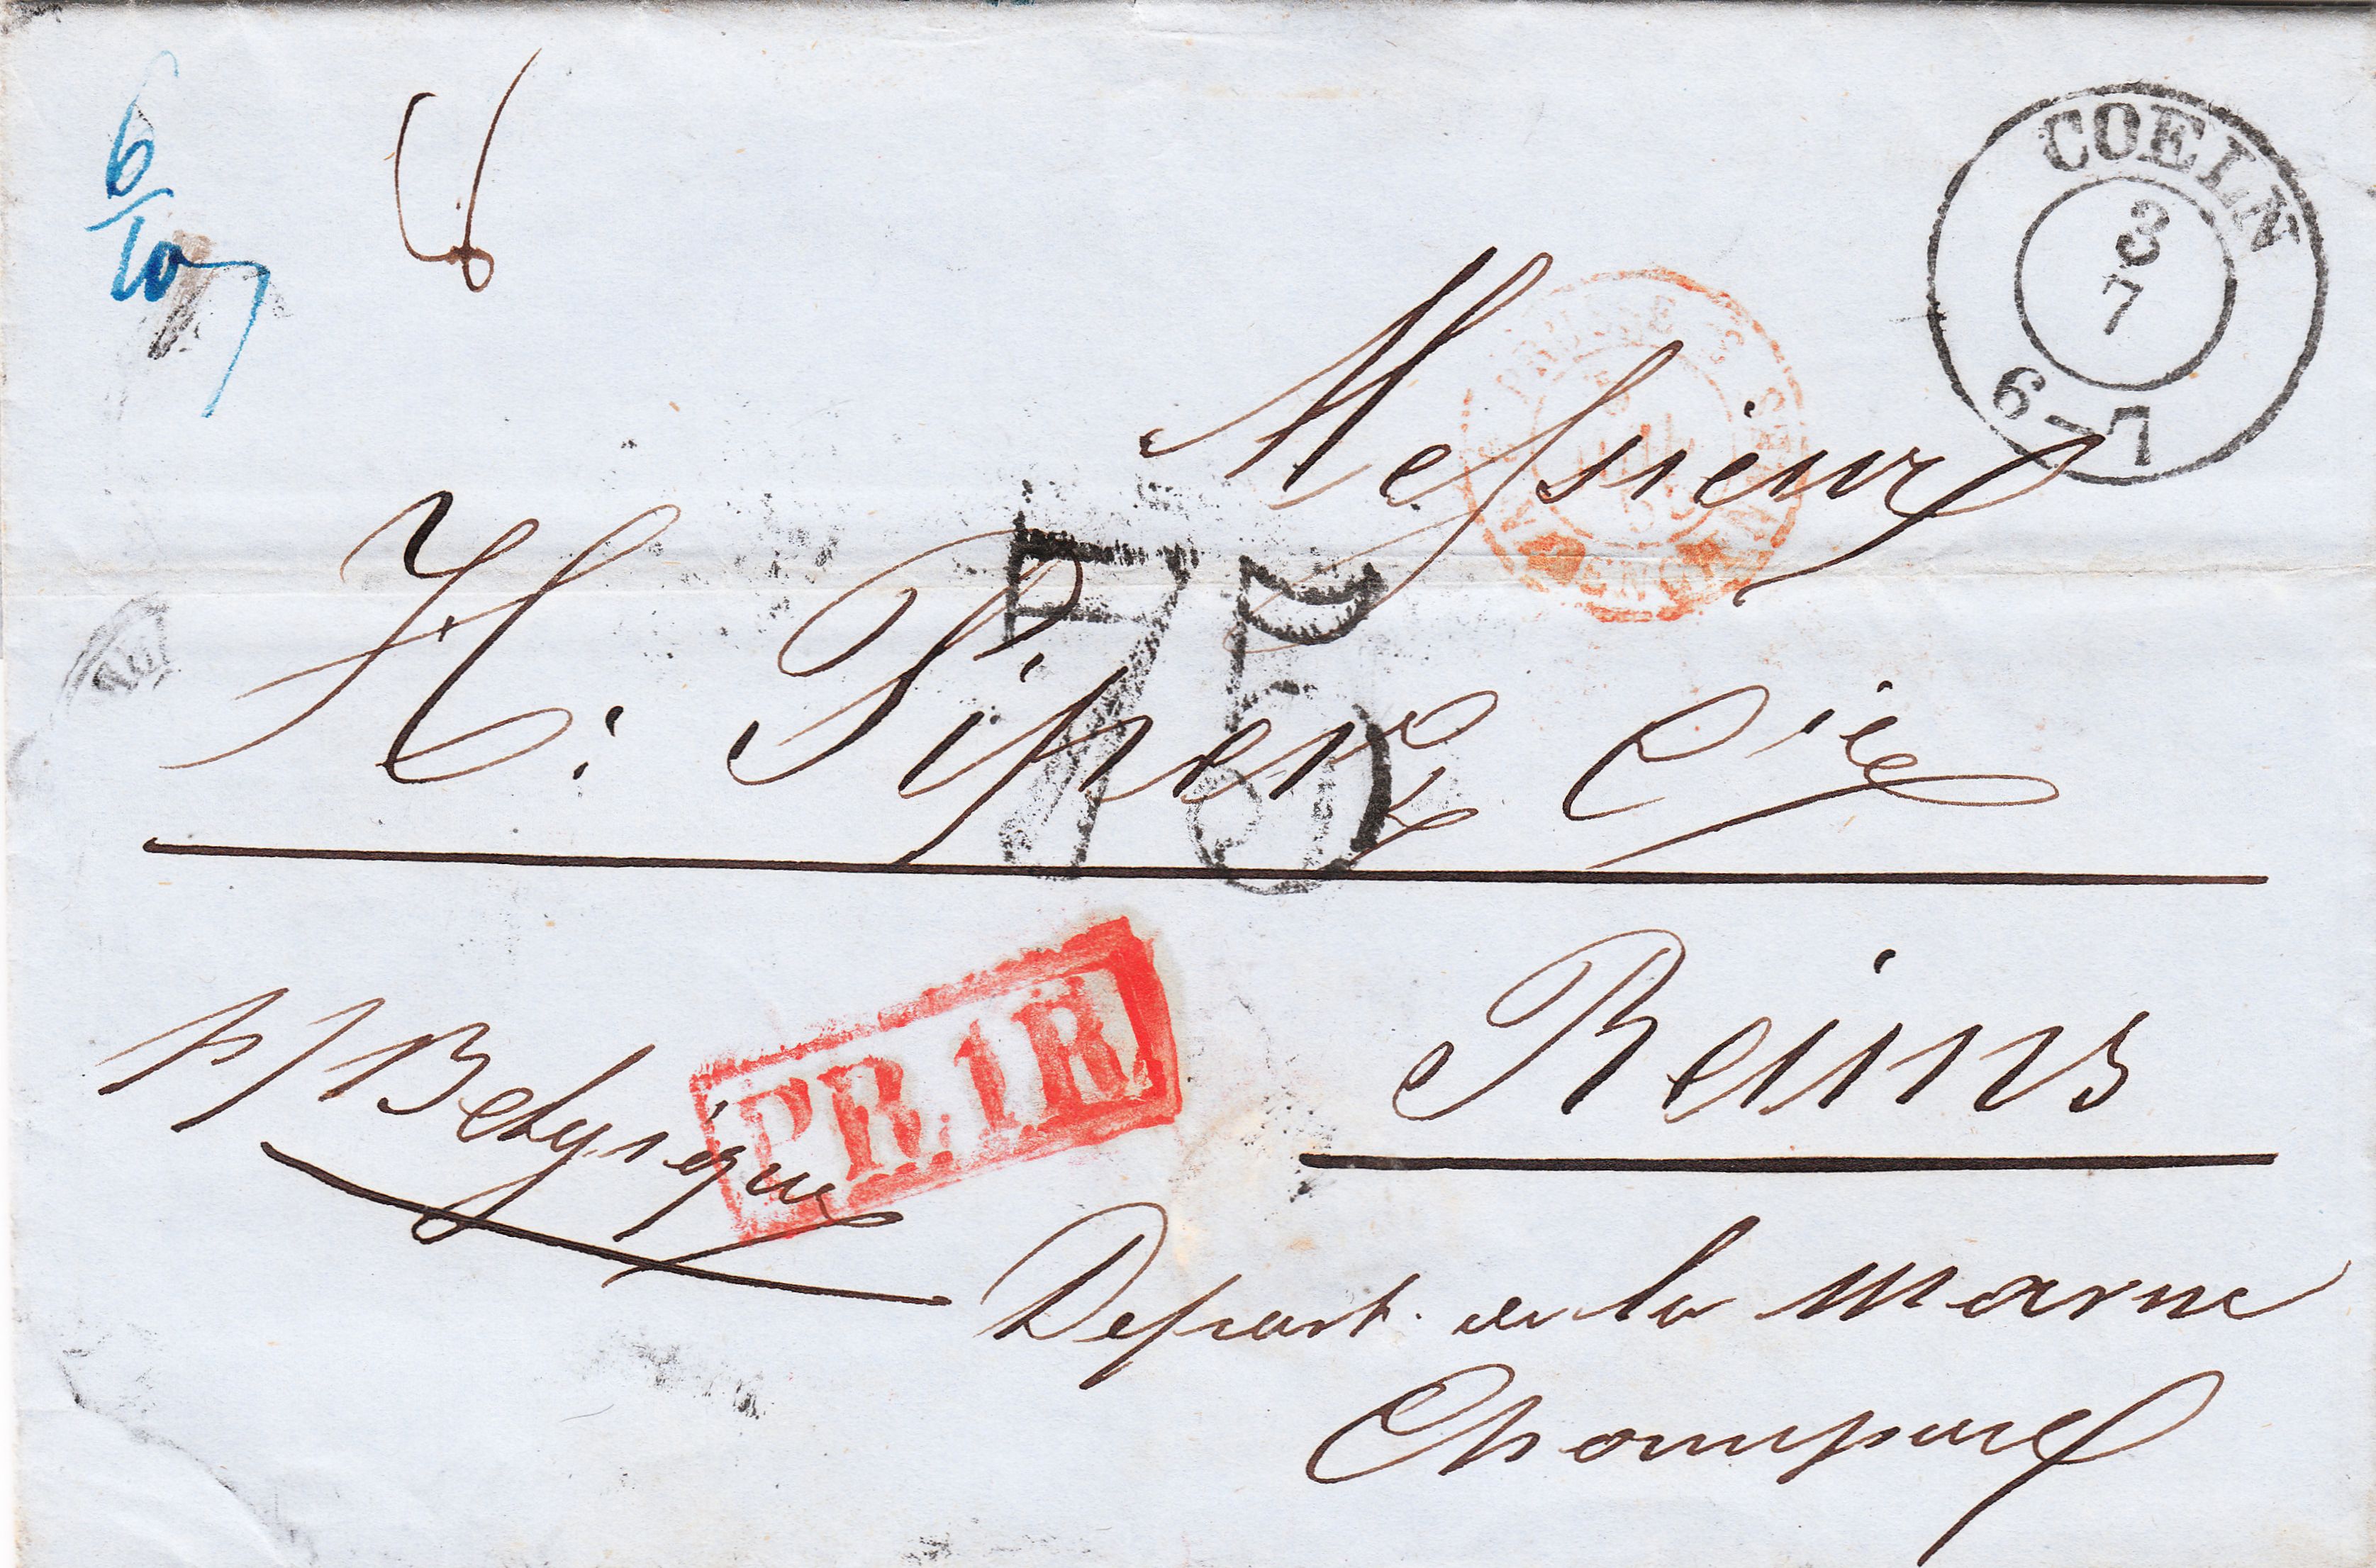 6
10
6
COELN
3
7
6-7
PRUSSE
5
VALENCIENNES
Messieurs
H: Piper & Cie
75
PR.1R.
p/ Belgique
Reims
Depart. de la Marne
Champagne